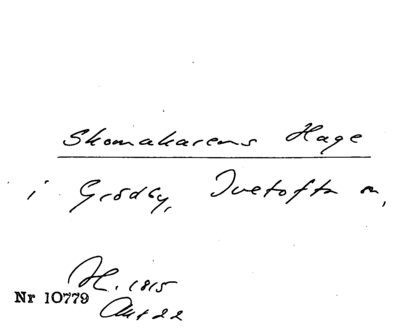 Skomakarens Hage
i Grödby, Ivetofta sn,
H. 1815
Nr 10779
Akt 22